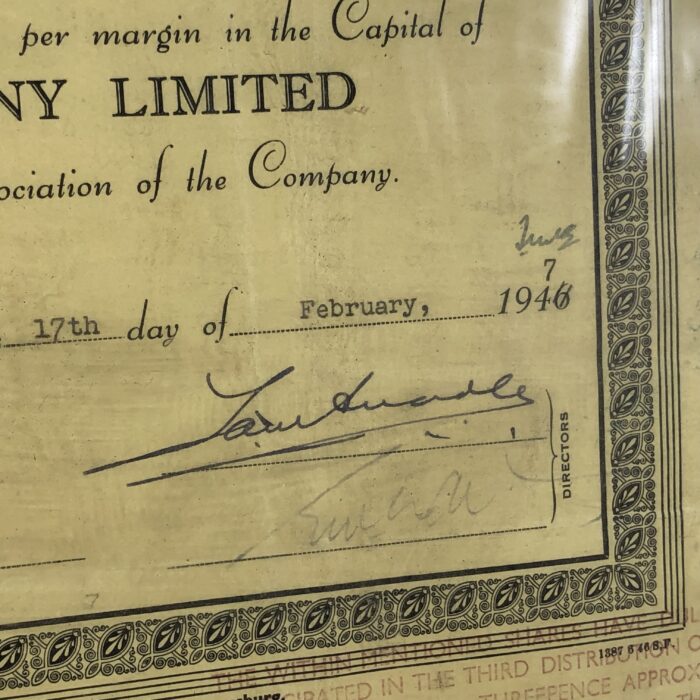 per margin in the Capital of
NY LIMITED
ociation of the Company.
7
17th day of February, 1946
DIRECTORS
1387 6 46 S.F.
THE WITHIN MENTIONED SHARES HAVE
CIPATED IN THE THIRD DISTRIBUTION O
APPROX